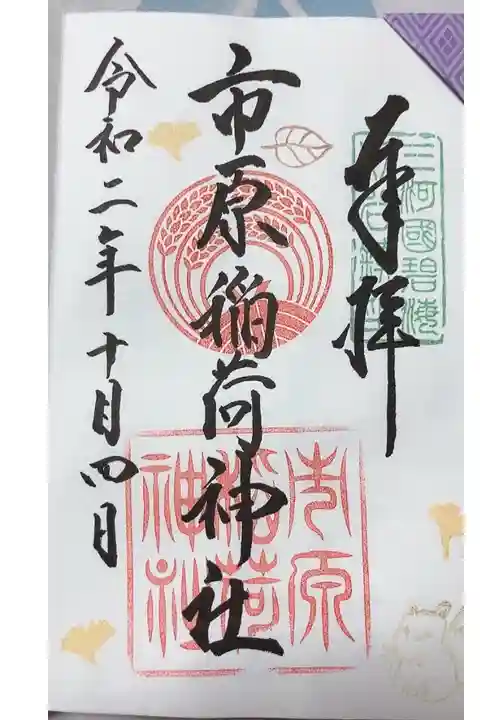 奉拝
市原稲荷神社
令和二年十月四日
三河國碧海
市原
稲荷
神社